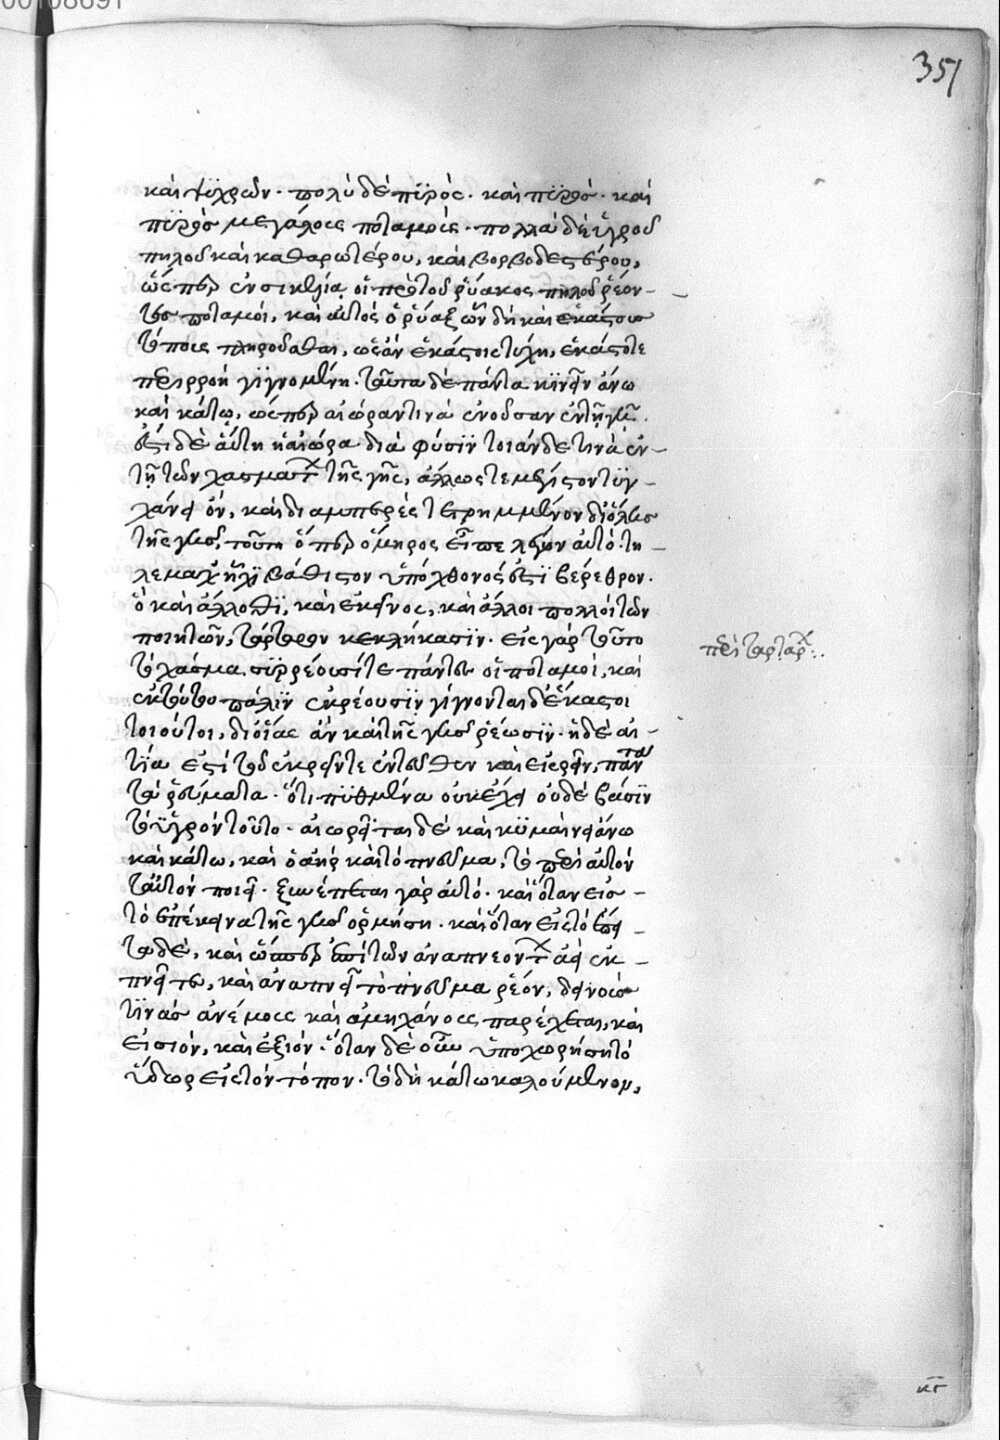 351
καὶ ψϋχρῶν· πολὺ δὲ πϋρὸς· καὶ πϋρὸσ· καὶ
πϋρὸσ μεγάλους ποταμούς· πολλοὺ δὲ ὑγροῦ
πηλοῦ καὶ καθαρωτέρου, καὶ βορβοδεστέρου,
ὥσπερ ἐν σικελίᾳ οἱ πρὸ τοῦ ῥύακος πηλοῦ ῥέον-
τεσ ποταμοί, καὶ αὐτὸς ὁ ῥύαξ ὧν δὴ καὶ ἑκάστουσ
τόπους πληροῦσθαι, ὡς ἂν ἑκάστοις τύχη, ἑκάστοτε
περιρροὴ γιγνομένη. ταῦτα δὲ πάντα κϊνεῖν ἄνω
καὶ κάτω, ὥσπερ αἰώραν τινὰ ἐνοῦσαν ἐν τῆ γῆ.
ἔστι δὲ αὕτη ἡ αἰώρα διὰ φύσϊν τοιάνδε τινὰ ἕν-
τῆ τῶν χασμάτων τῆς γῆς, ἄλλως τε μέγιστον τυγ-
χάνει ὄν, καὶ διαμπερὲς τετρημμένον δι' ὅλησ
τῆς γῆσ, τοῦτο ὅπερ ὅμηρος εἶπε λέγων αὐτό· τη-
λε μαχ' ἧχϊ βάθιστον ὑπὸ χθονὸς ἐστϊ βέρεθρον.
ὃ καὶ ἄλλοθϊ, καὶ ἐκεῖνος, καὶ ἄλλοι πολλοὶ τῶν
ποιητῶν, τάρταρον κεκλήκασϊν. εἰς γὰρ τοῦτο
τὸ χάσμα συρρέουσί τε πάντεσ οἱ ποταμοί, καὶ
ἐκ τούτου πάλϊν ἐκρέουσϊν γίγνονται δὲ ἕκαστοι
τοιοῦτοι, δι' οἵας ἂν καὶ τῆς γῆσ ῥέωσϊν. ἡ δὲ αἰ-
τία ἐστὶ τοῦ ἐκρεῖν τε ἐντεῦθεν καὶ εἰσρεῖν, πάντα
τὰ ῥεύματα. ὅτι πϋθμένα οὐκ ἔχει οὐδὲ βάσϊν
τὸ ὑγρὸν τοῦτο. αἰωρεῖται δὲ καὶ κϋμαίνει ἄνω
καὶ κάτω, καὶ ὁ ἀὴρ καὶ τὸ πνεῦμα, τὸ περὶ αὐτὸν
ταὐτὸν ποιεῖ. ξυνέπεται γὰρ αὐτό. καὶ ὅταν εἰσ-
τὸ ἐπέκεινα τῆς γῆσ ὁρμήση. καὶ ὅταν εἰς τὸ ἐπὶ
τάδε, καὶ ὥσπερ ἐπὶ τῶν ἀναπνεόντων ἀεὶ ἐκ-
πνεῖ τε, καὶ ἀναπνεῖ τὸ πνεῦμα ῥέον, δεινούσ
τϊνὰσ ἀνέμους καὶ ἀμηχάνους παρέχεται, καὶ
εἰσιόν, καὶ ἐξιόν. ὅταν δὲ οὖν ὑποχωρήση τὸ
ὕδωρ εἰς τὸν τόπον. τὸ δὴ κάτω καλούμενον,
περὶ ταρτάρου